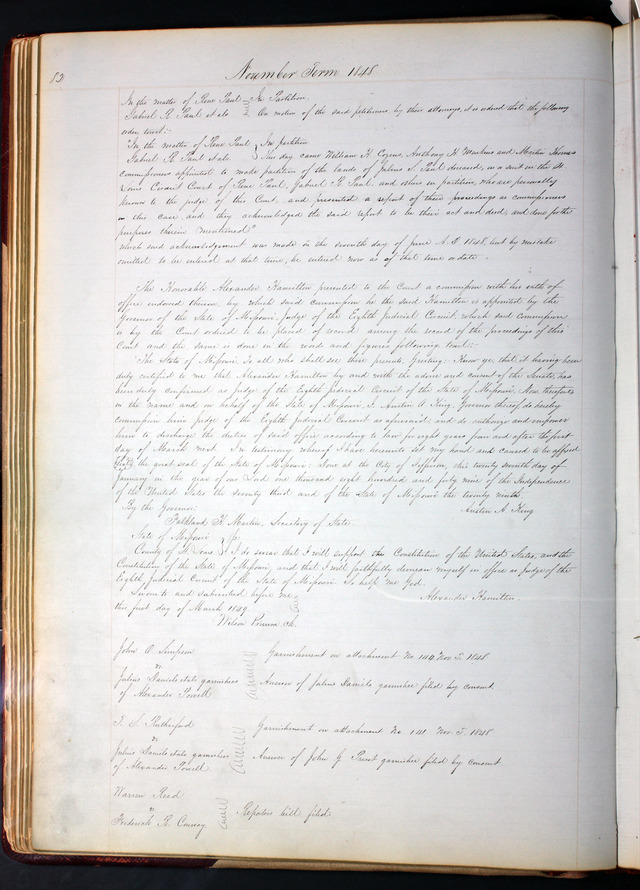 52
November Term 1848
In the matter of Rene Paul } In Partition
Gabriel R. Paul et als } On motion of the said petitioners by their attorneys, it is ordered that the following
order, towit:-
"In the matter of Rene Paul } In partition
Gabriel R. Paul et als. } This day came William H. Cozens, Anthony H. Menkens and Martin Thomas
commissioners appointed to make partition of the lands of Julius S. Paul deceased, in a suit in the St
Louis Circuit Court of Rene Paul, Gabriel R. Paul, and others in partition, who are personally
known to the judge of this Court, and presented a report of their proceedings as commissioners
in this case, and they acknowledged the said report to be their act and deed, and done for the
purposes therein mentioned."
which said acknowledgement was made on the seventh day of June A.D. 1848, but by mistake
omitted to be entered at that time, be entered now as of that time or date.
The Honorable Alexander Hamilton presented to the Court a commission with his oath of
office endorsed thereon, by which said commission he the said Hamilton is appointed by the
Governor of the State of Missouri, Judge of the Eighth Judicial Circuit, which said commission
is by the Court ordered to be placed of record among the record of the proceedings of this
Court and the same is done in the words and figures following towit:-
"The State of Missouri To all who shall see these presents, Greeting: Know ye, that it having been
duly certified to me that Alexander Hamilton by and with the advice and consent of the Senate, has
been duly confirmed as Judge of the Eighth Judicial Circuit of the State of Missouri. Now therefore
in the name and on behalf of the State of Missouri I, Austin A. King, Governor thereof do hereby
commission him Judge of the Eighth Judicial Circuit as aforesaid; and do authorize and empower
him to discharge the duties of said office according to law for eight years from and after the first
day of March next. In testimony whereof I have hereunto set my hand and caused to be affixed
the great seal of the State of Missouri. Done at the City of Jefferson, this twenty seventh day of
January in the year of our Lord one thousand eight hundred and forty nine of the Independence
of the United States the seventy third and of the State of Missouri the twenty ninth.
By the Governor:
Austin A. King
Falkland H. Martin, Secretary of State
State of Missouri }
County of St Louis } I do swear that I will support the Constitution of the United States, and the
Constitution of the State of Missouri, and that I will faithfully demean myself in office as Judge of the
Eighth Judicial Circuit of the State of Missouri. So help me God.
Sworn to and subscribed before me
Alexander Hamilton
this first day of March 1849
Wilson Primm, Clk.
John O. Simpson
vs
Julius Daniels et als garnishees
of Alexander Powell
Garnishment on attachment No. 140 Nov. T. 1848
Answer of Julius Daniels garnishee filed by consent.
T. S. Rutherford
vs
Julius Daniels et als garnishees
of Alexander Powell
Garnishment on attachment No. 141 Nov. T. 1848
Answer of John G. Priest garnishee filed by consent
Warren Reed
vs
Frederick R. Conway
Reporters bill filed.